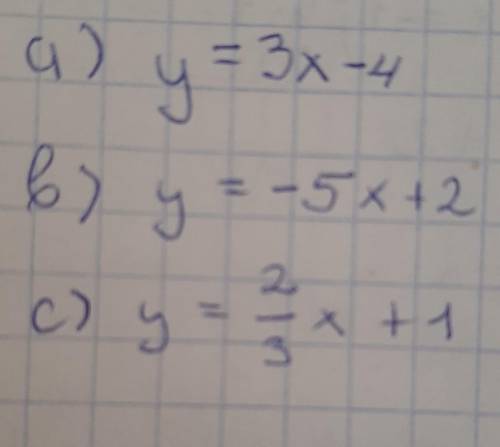 a) y = 3x - 4
b) y = -5x + 2
c) y = 2/3 x + 1